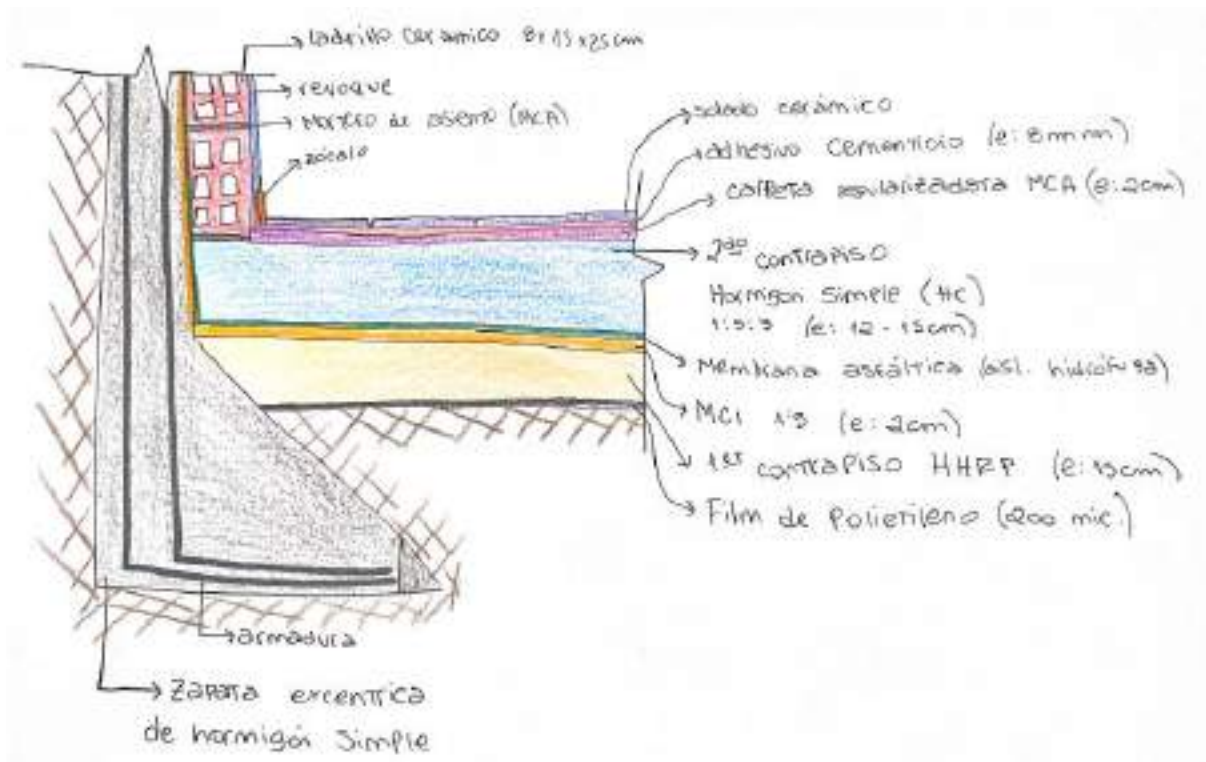 ladrillo cerámico 8x15x25cm
revoque
mortero de asiento (MCA)
zócalo
solado cerámico
adhesivo cementicio (e: 8mm)
carpeta regularizadora MCA (e: 2cm)
2do contrapiso
Hormigón Simple (HC)
(e: 12 - 15cm)
Membrana asfáltica (aisl. hidrófuga)
MCI 1:3 (e: 2cm)
1er contrapiso HHRP (e: 15cm)
Film de Polietileno (200 mic.)
armadura
Zapata excentrica
de hormigón simple